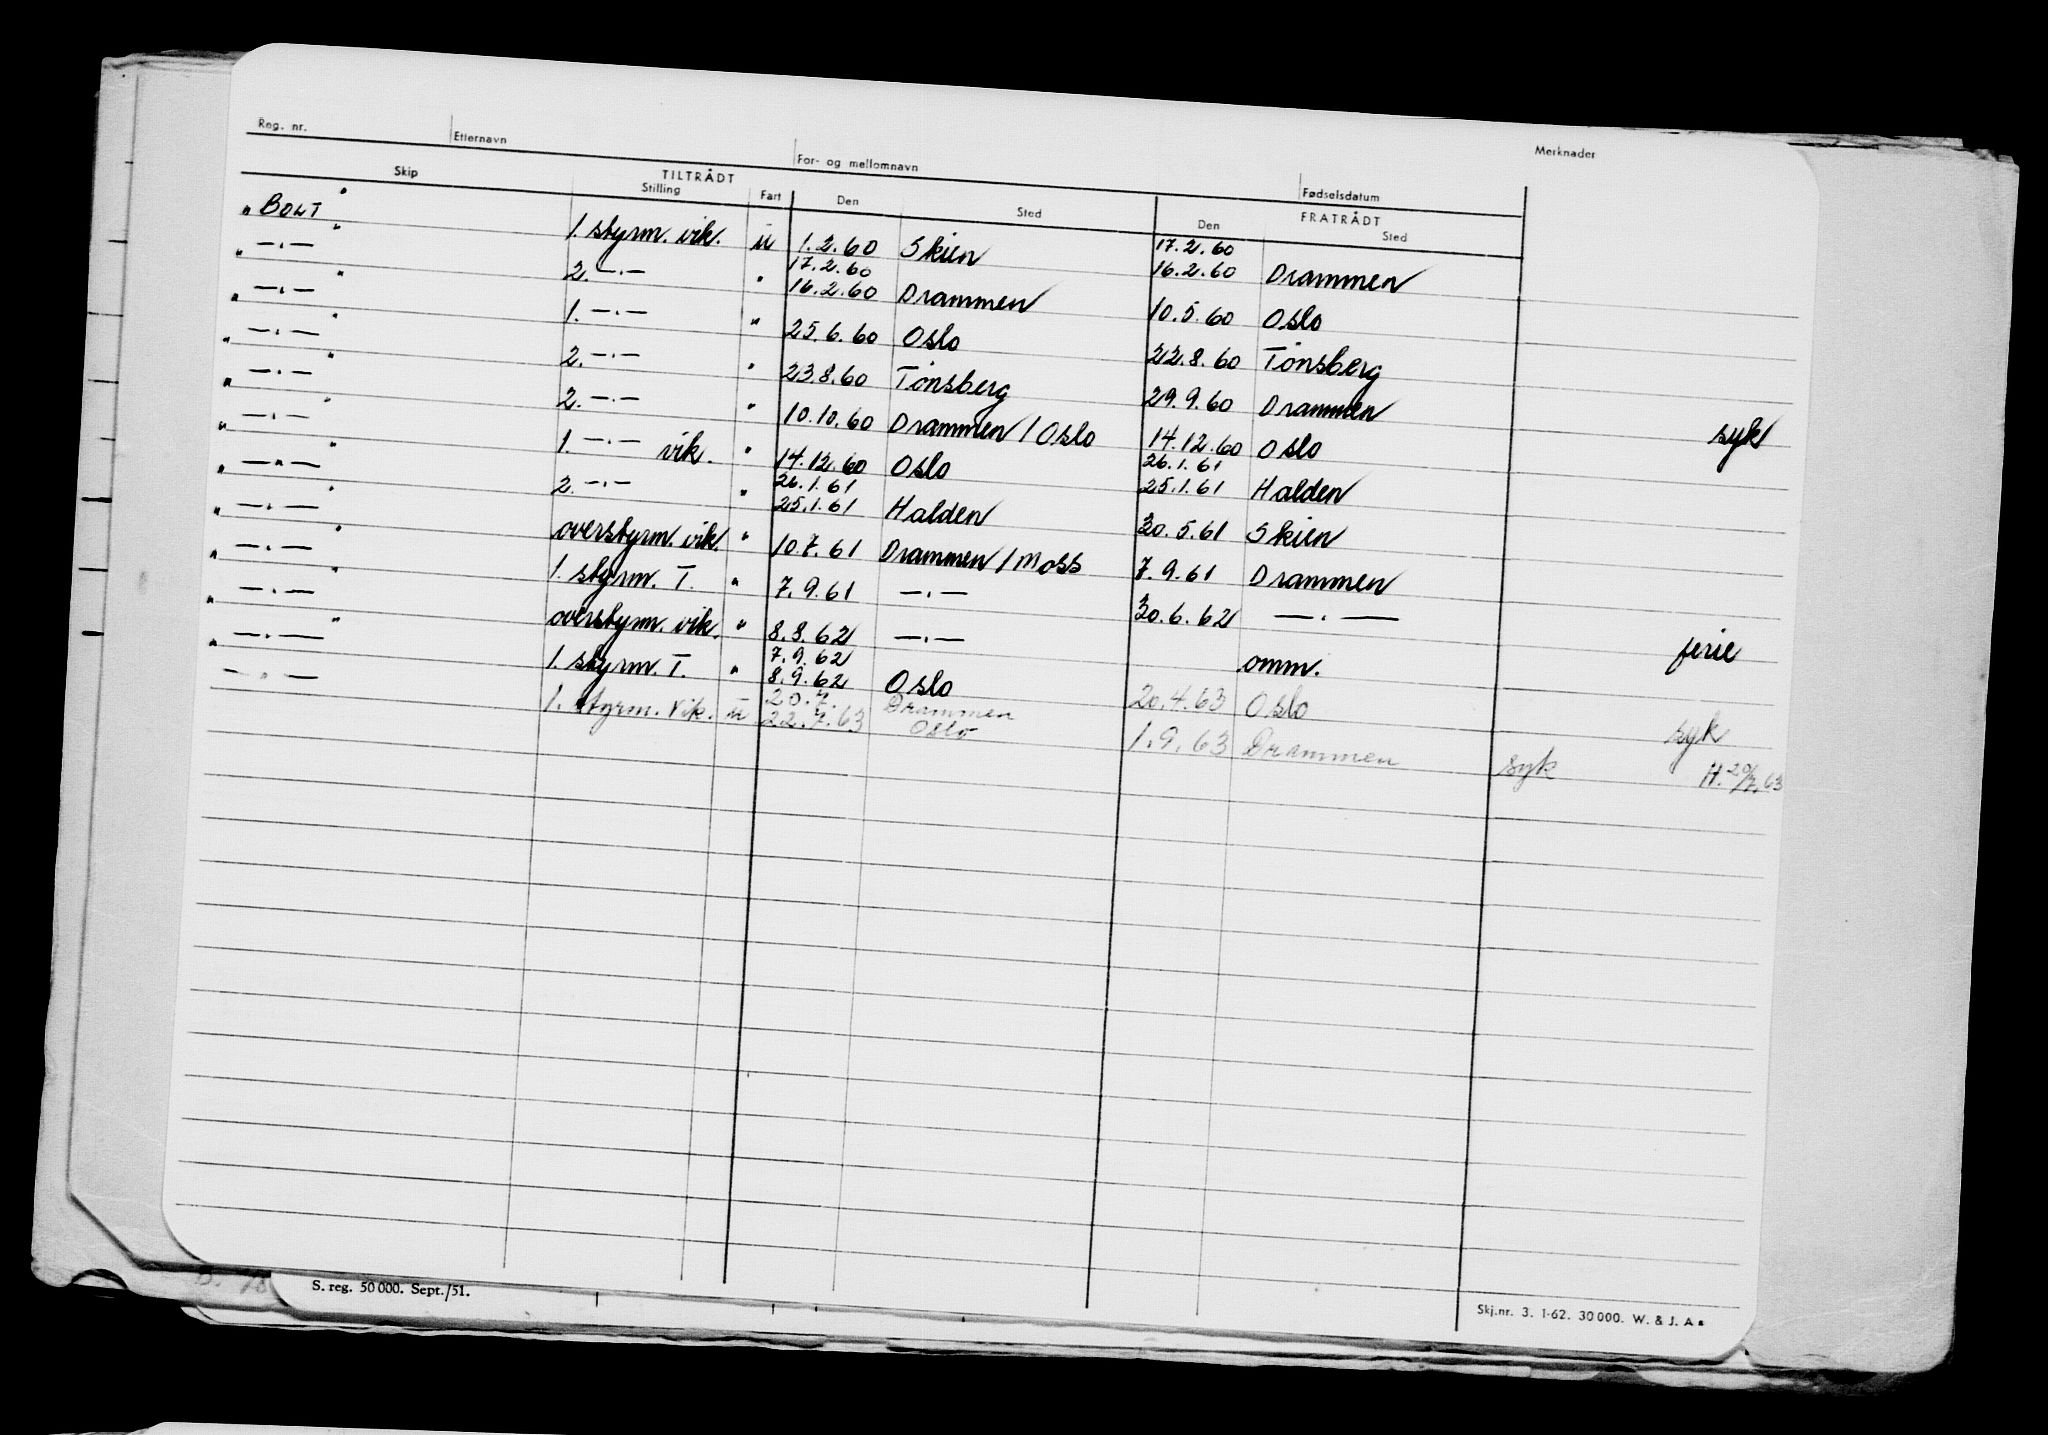 Reg. nr. Etternavn For- og mellomnavn Fødselsdatum Merknader
Skip TILTRÅDT FRATRÅDT
Stilling Fart Den Sted Den Sted
" BOLT " 1. styrm. vik. u 1.2.60 Skien 17.2.60 16.2.60 Drammen
" —.— " 2. —.— " 17.2.60 16.2.60 Drammen 10.5.60 Oslo
" —.— " 1. —.— " 25.6.60 Oslo 22.8.60 Tönsberg
" —.— " 2. —.— " 23.8.60 Tönsberg 29.9.60 Drammen syk
" —.— " 2. —.— " 10.10.60 Drammen / Oslo 14.12.60 Oslo
" —.— " 1. —.— vik. " 14.12.60 Oslo 26.1.61 25.1.61 Halden
" —.— " 2. —.— " 26.1.61 25.1.61 Halden 30.5.61 Skien
" —.— " overstyrm. vik. " 10.7.61 Drammen / Moss 7.9.61 Drammen
" —.— " 1. styrm. T. " 7.9.61 —.— 30.6.62 —.— ferie
" —.— " overstyrm. vik. " 8.8.62 —.— omm.
" —.— " 1. styrm. T. " 7.9.62 8.9.62 Oslo 20.4.63 Oslo syk
—.— 1. styrm. vik. u 20.7. 22.7.63 Drammen Oslo 1.9.63 Drammen syk H. 20/7.63
S. reg. 50 000. Sept./51.
Skj.nr. 3. 1-62. 30 000. W. & J. A s